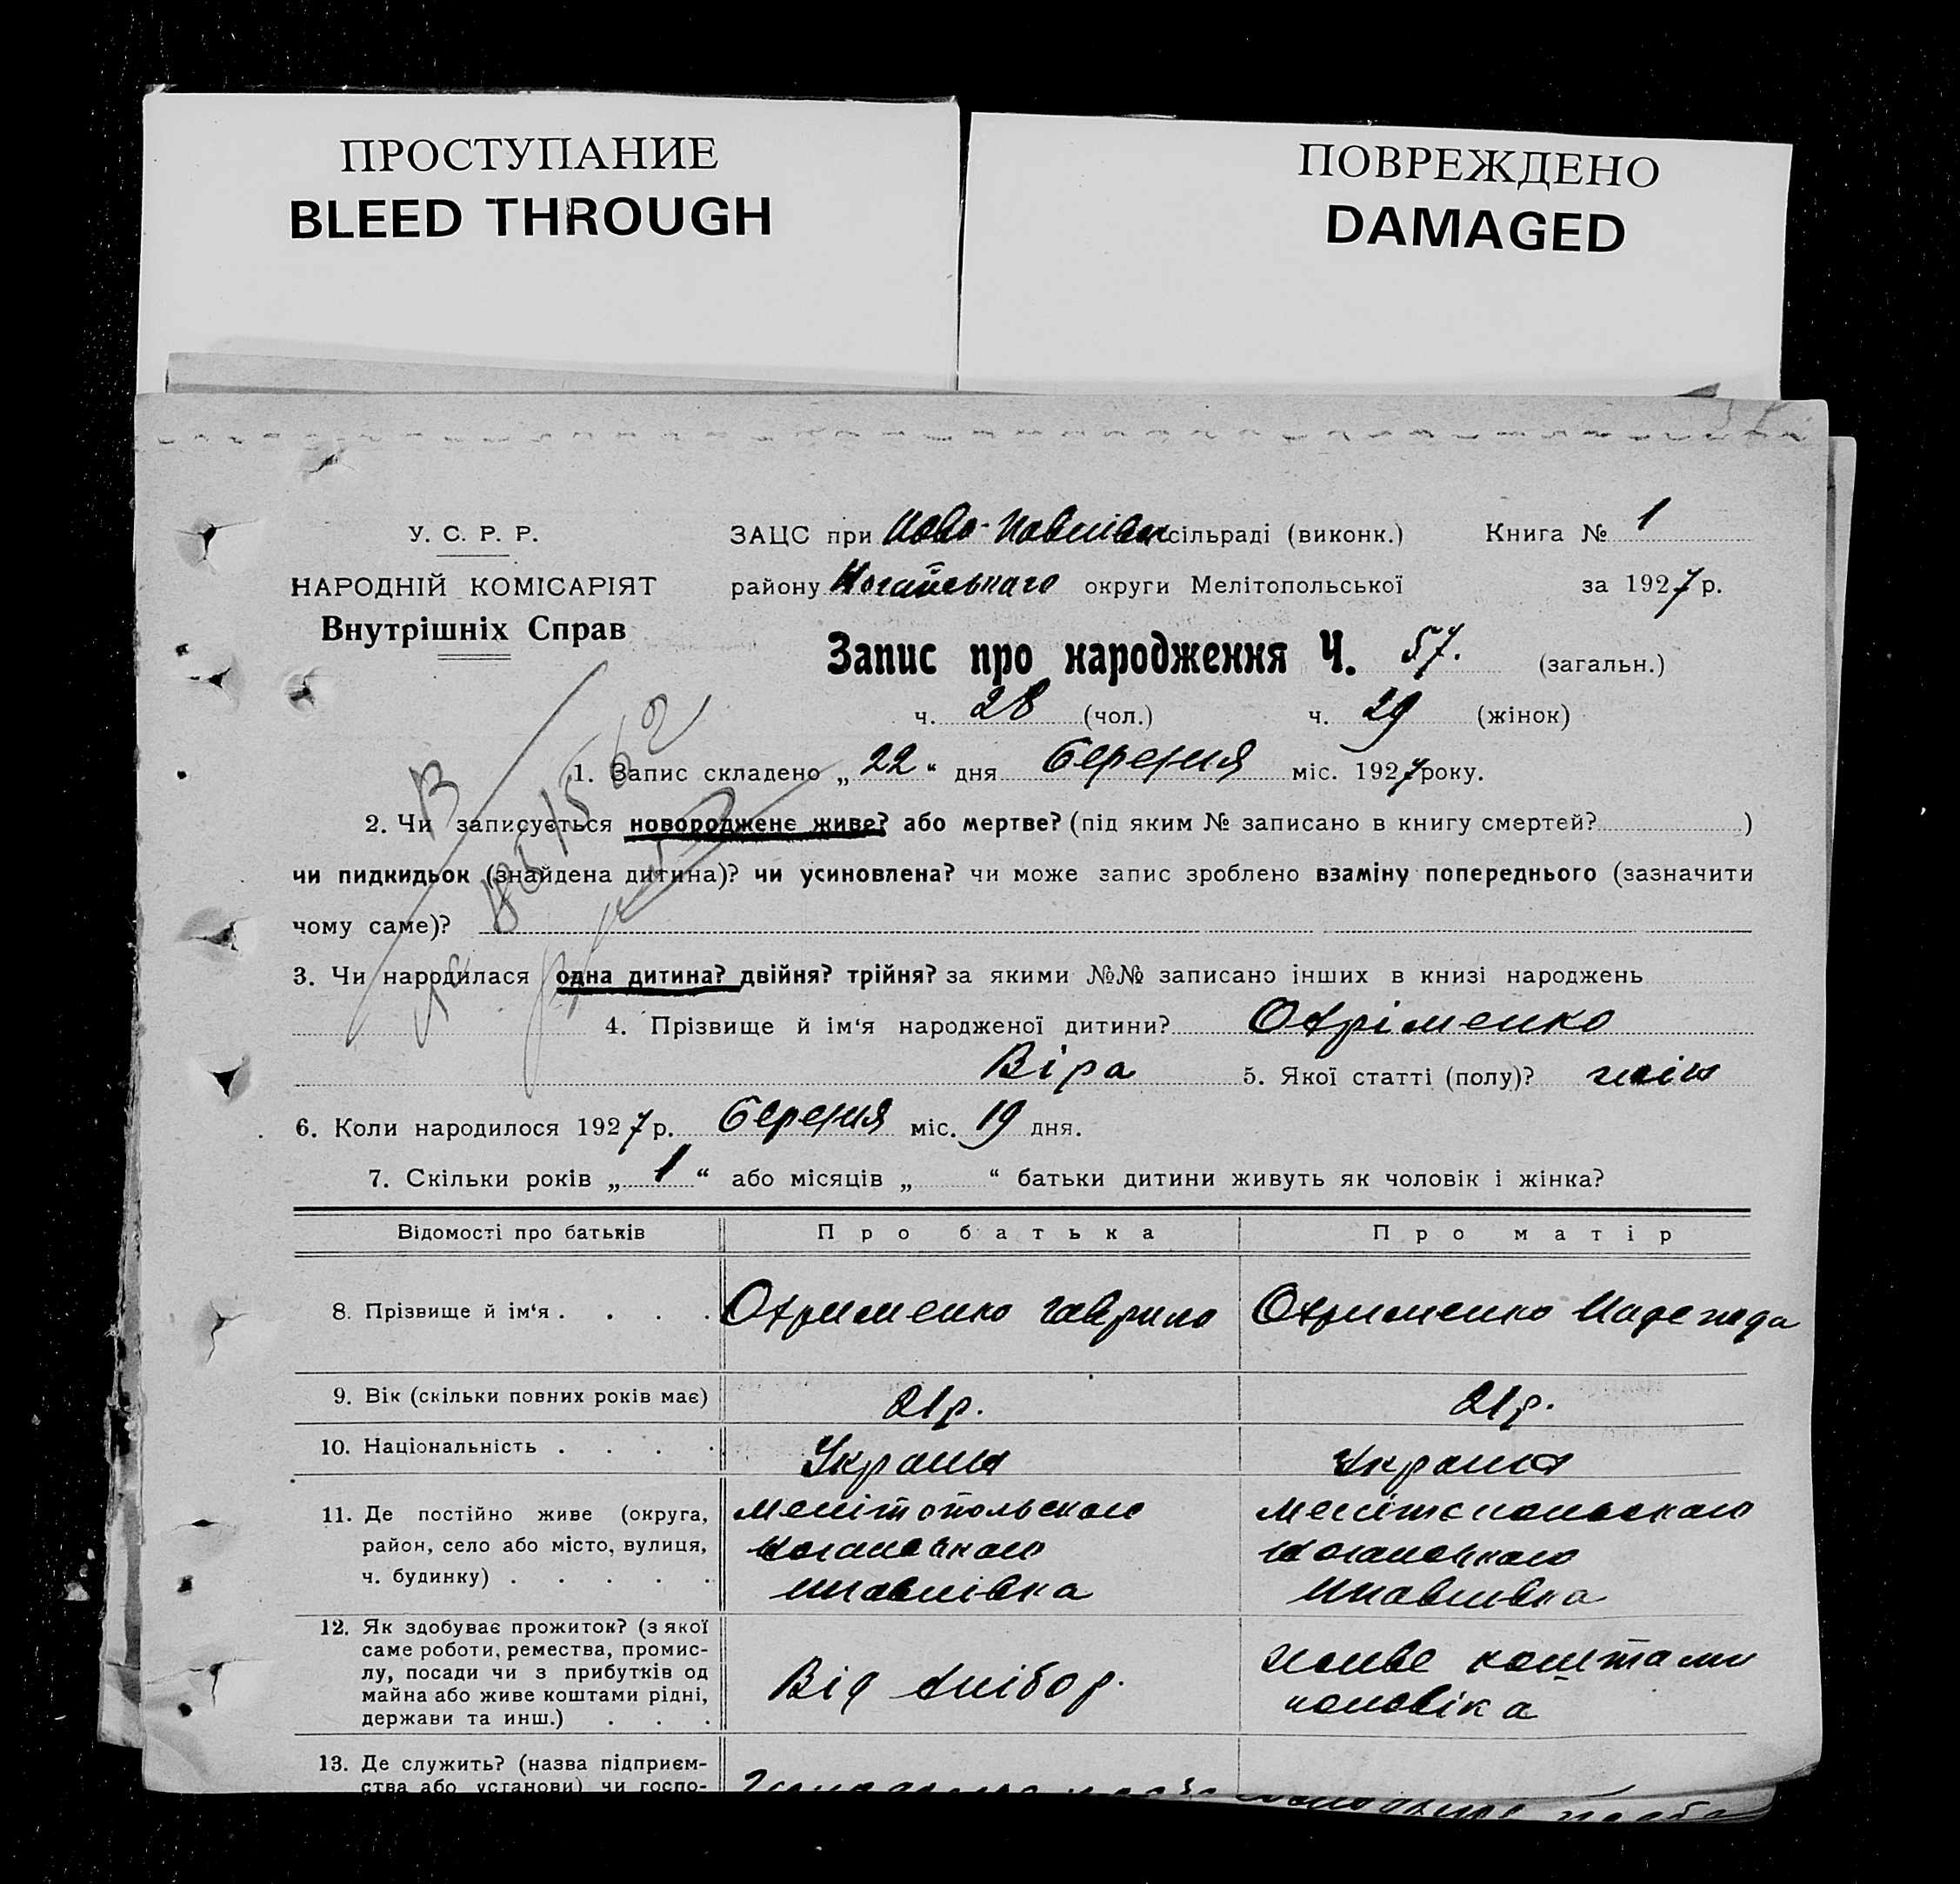 ПРОСТУПАНИЕ
BLEED THROUGH
ПОВРЕЖДЕНО
DAMAGED
У. С. Р. Р.
НАРОДНІЙ КОМІСАРІЯТ
Внутрішніх Справ
ЗАЦС при Ново-Павлівск сільраді (виконк.)
Книга № 1
району Ногайського округи Мелітопольської
за 1927 р.
Запис про народження Ч. 57. (загальн.)
ч. 28 (чол.) ч. 29 (жінок)
1. Запис складено „22“ дня березня міс. 1927 року.
2. Чи записується новороджене живе? або мертве? (під яким № записано в книгу смертей? )
чи пидкидьок (знайдена дитина)? чи усиновлена? чи може запис зроблено взаміну попереднього (зазначити
чому саме)?
3. Чи народилася одна дитина? двійня? трійня? за якими №№ записано інших в книзі народжень
4. Прізвище й ім‘я народженої дитини? Охріменко
Віра 5. Якої статті (полу)? жін
6. Коли народилося 1927 р. березня міс. 19 дня.
7. Скільки років „1“ або місяців „ “ батьки дитини живуть як чоловік і жінка?
Відомості про батьків Про батька Про матір
8. Прізвище й ім‘я . . . . Охрименко Гаврило Охрименко Надежда
9. Вік (скільки повних років має) 21 р. 21 р.
10. Національність . . . . Україн Україн
11. Де постійно живе (округа, Мелітопольского Мелітопольского
район, село або місто, вулиця,
ч. будинку) . . . . . Нпавлівка Нпавлівка
12. Як здобуває прожиток? (з якої
саме роботи, ремества, промис-
лу, посади чи з прибутків од
майна або живе коштами рідні,
держави та инш.) . . .
Від хлібор.
живе коштами
чоловіка
13. Де служить? (назва підприєм-
ства або установи) чи госпо-